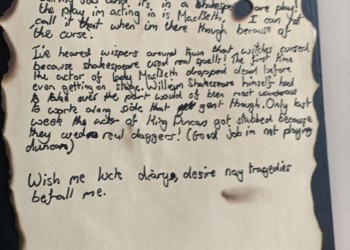 acting job and it's in a Shakespeare play!
the play I'm acting in is MacBeth, I can not
call it that when im there though because of
the curse.
I've heared wispers around town that witches cursed
because shakespeare used real spells! The first time
the actor of lady MacBeth dropped dead before
even getting on stage. William Shakespeare himself had
to take over the part would of been most wonderous
to work along side that giant though. Only last
week the actor of King Duncan got stabbed because
they used real daggers! (Good job im not playing
duncan)
Wish me luck diarye, desire nay tragedies
befall me.